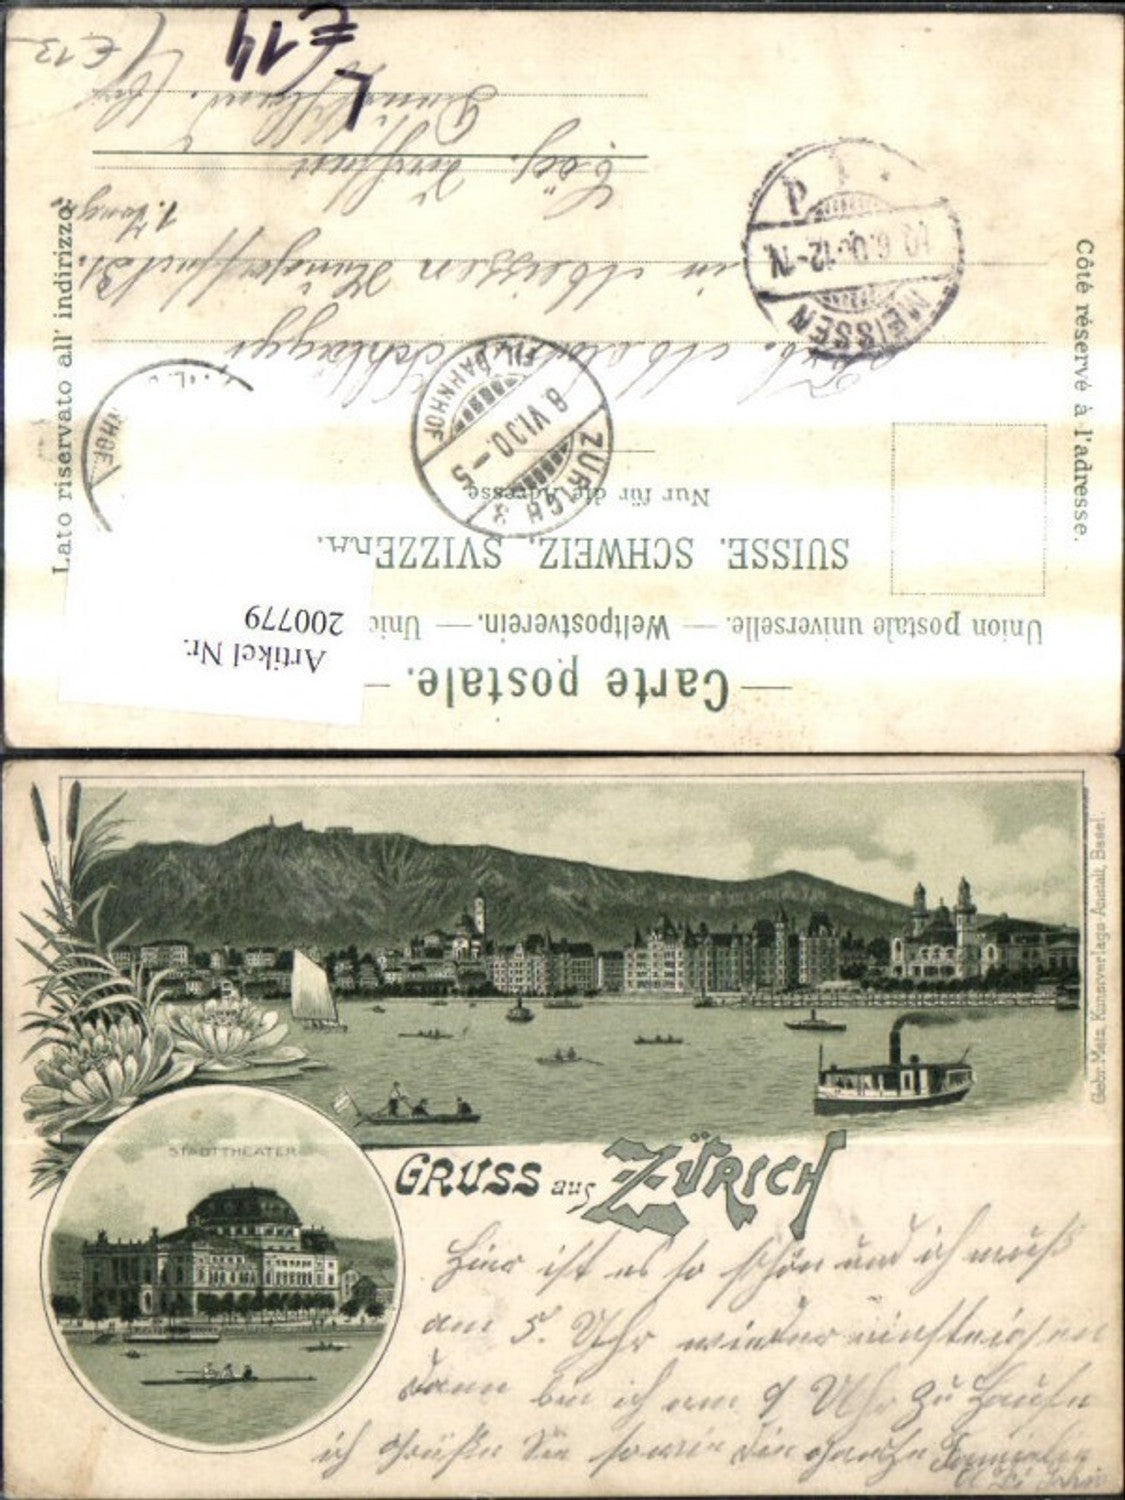 Carte postale.
Union postale universelle. — Weltpostverein. — Unic
SUISSE. SCHWEIZ. SVIZZERA.
Nur für die Adresse
Côté réservé à l'adresse.
Lato riservato all' indirizzo.
Artikel Nr.
200779
ZÜRICH 3
8. VI. 00. – 5
FIL. BAHNHOF
NHOF
MEISSEN
12-1N.
in Meissen
£14
£13
Gebr. Metz, Kunstverlags-Anstalt, Basel.
STADTTHEATER
GRUSS aus ZÜRICH
Hier ist es so schön und ich muß
am 5. Uhr wieder einsteigen
dann bin ich um 9 Uhr zu Hause
ich grüße Sie sowie die ganze Familie